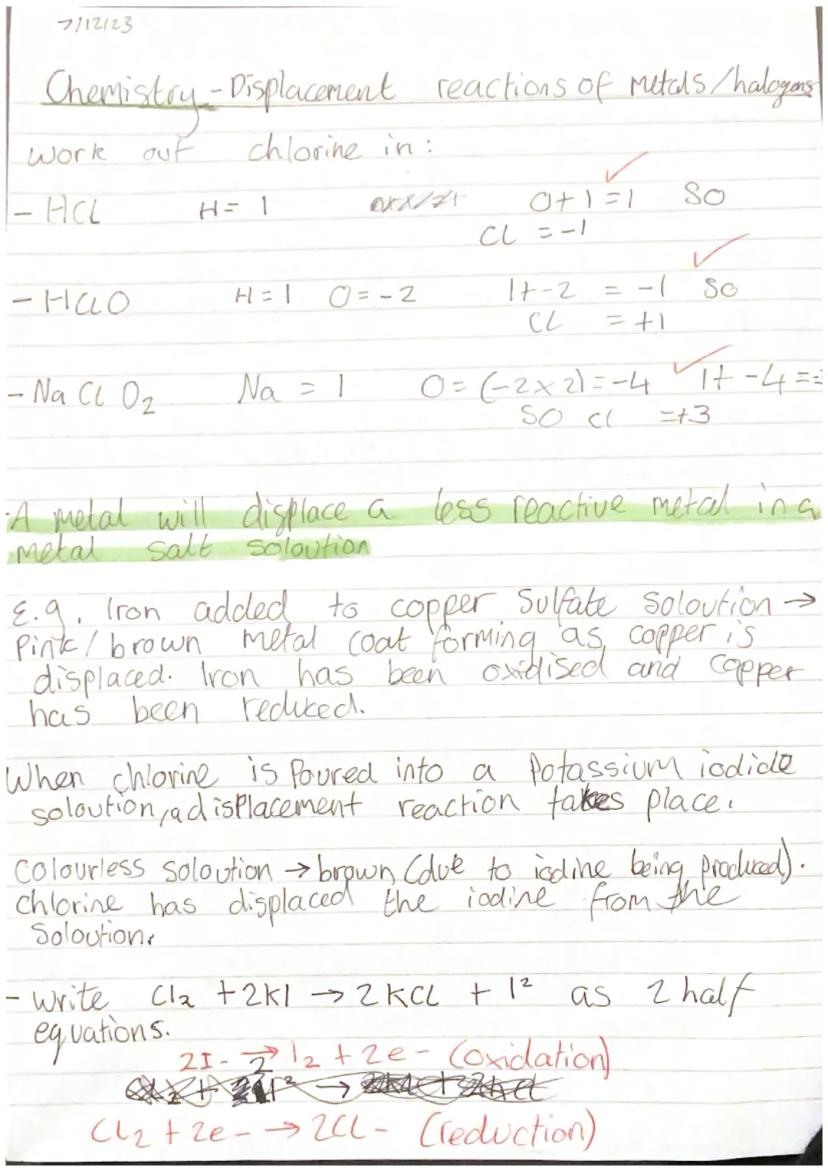 7/12/23
Chemistry - Displacement reactions of metals/halogens
Work out chlorine in:
- HCl H = 1 0+1=1 So
Cl = -1
- HClO H=1 O=-2 1+-2 = -1 So
Cl = +1
- NaClO2 Na = 1 O=(-2x2)=-4 1+ -4 =
So Cl =+3
·A metal will displace a less reactive metal in a
metal salt soloution
E.g. Iron added to copper sulfate soloution →
Pink/brown metal coat forming as copper is
displaced. Iron has been oxidised and copper
has been reduced.
When chlorine is poured into a potassium iodide
soloution, a displacement reaction takes place.
Colourless soloution → brown (due to iodine being produced).
Chlorine has displaced the iodine from the
soloution.
- Write Cl2 + 2KI → 2KCl + I² as 2 half
equations.
2I- → I2 + 2e- (oxidation)
Cl2 + 2e- → 2Cl- (reduction)